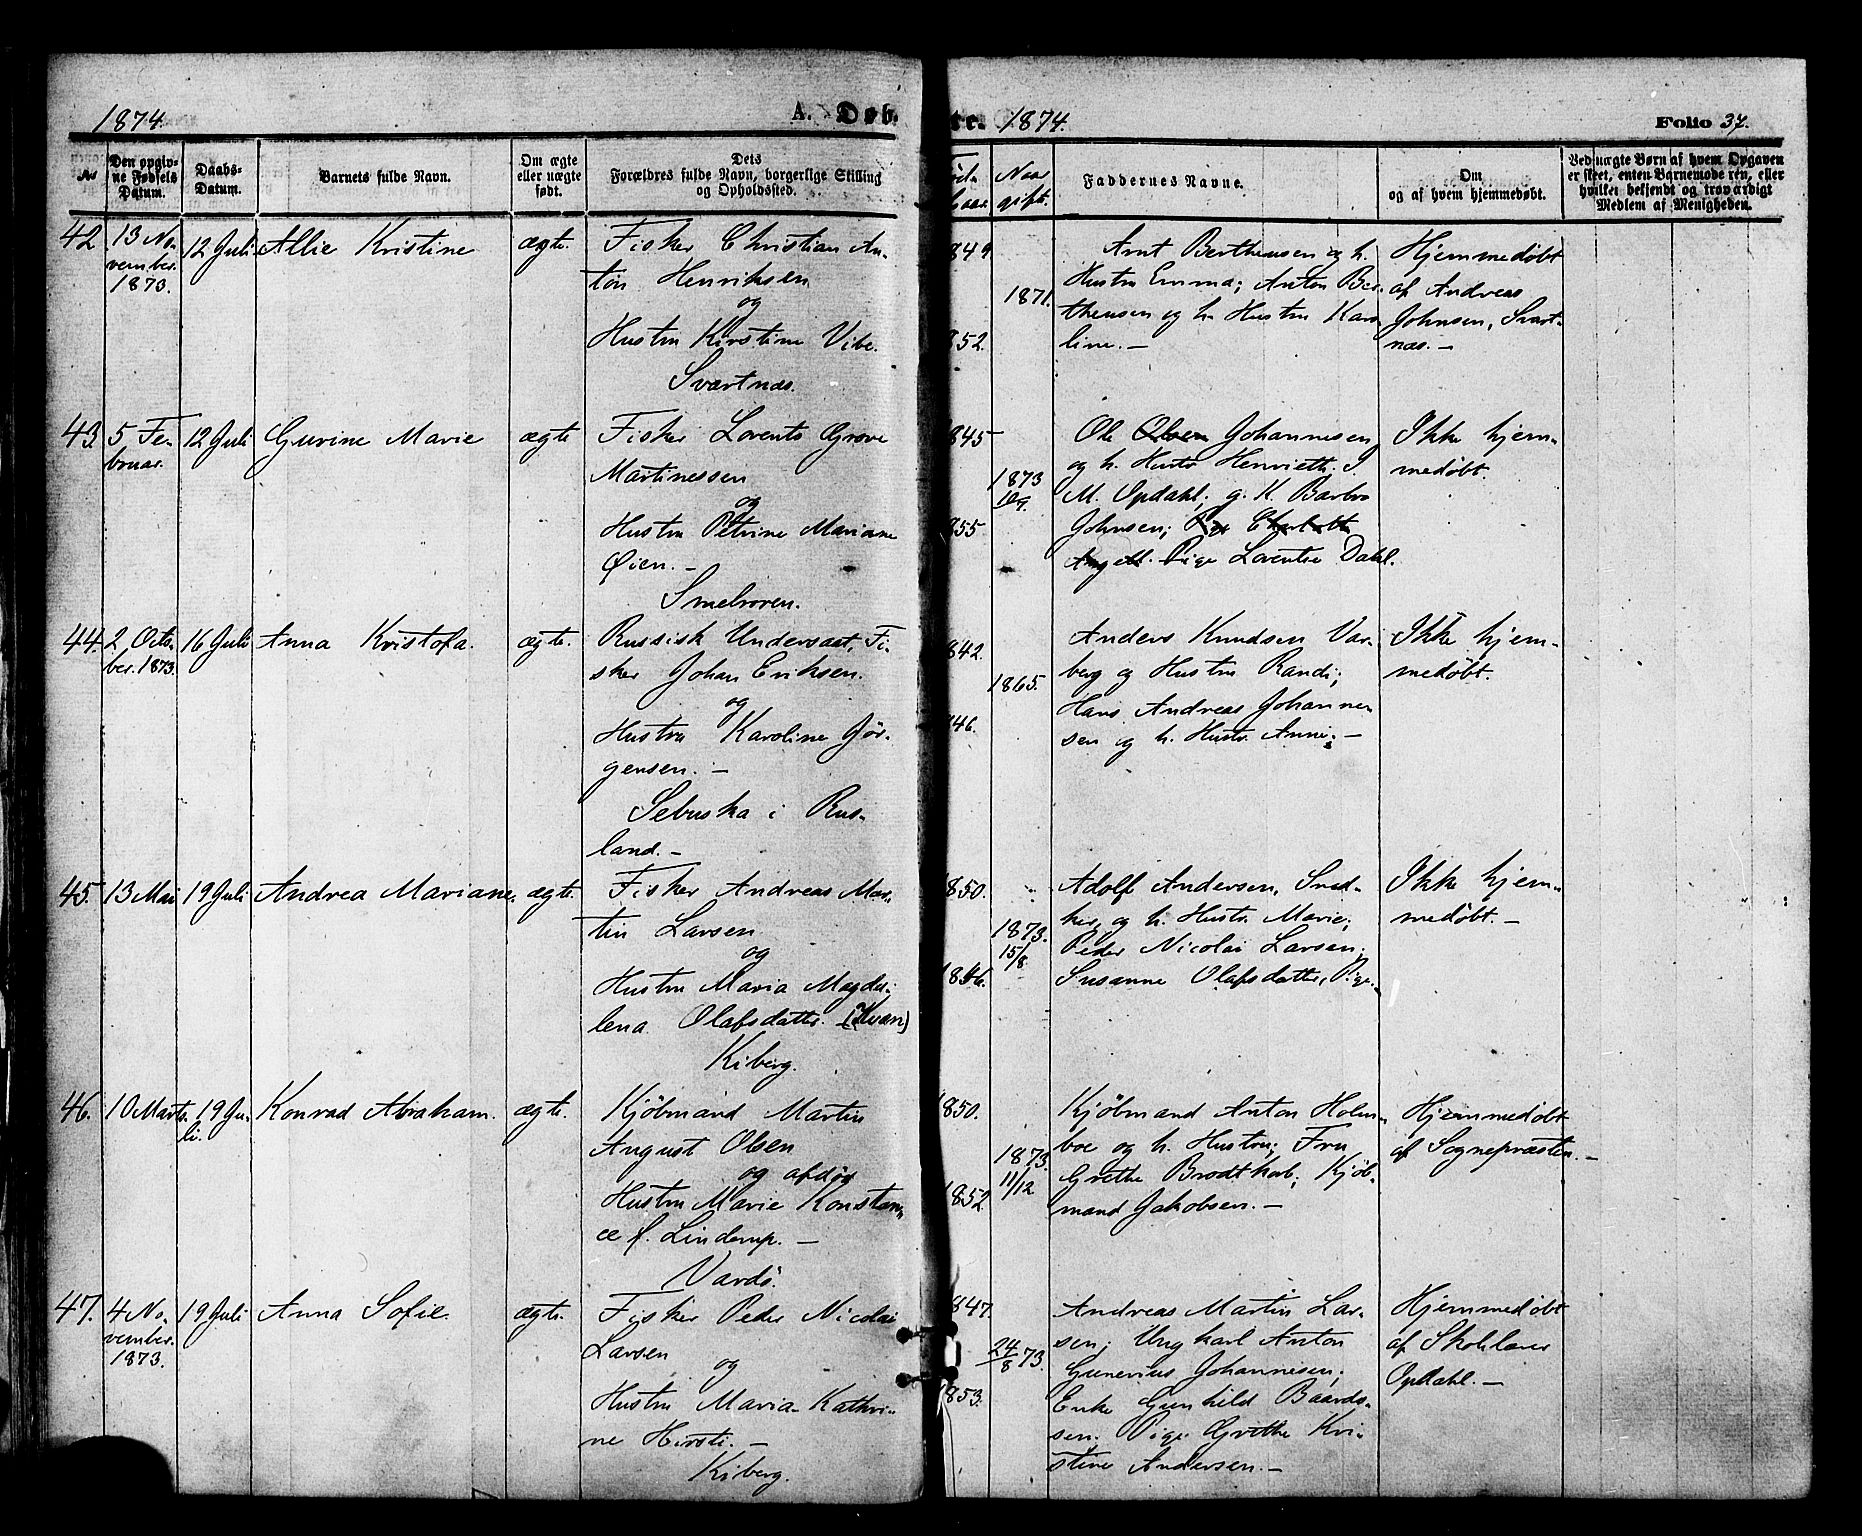 1874. A. Døb
te. 1874. Folio 37.
No
Den opgiv-
ne Fødsels
Datum.
Daabs-
Datum.
Barnets fulde Navn.
Om ægte
eller uægte
født.
Dets
Forældres fulde Navn, borgerlige Stilling
og Opholdssted.
Naar
gift.
Faddernes Navne.
Om
og af hvem hjemmedøbt.
Ved uægte Børn af hvem Opgaven
er skeet, enten Barnemoderen, eller
hvilket bekjendt og troværdigt
Medlem af Menigheden.
42
13 No-
vember.
1873.
12 Juli
Allie Kristine
ægte.
Fisker Christian An-
ton Henriksen
og
Hustru Kirstine Vibe.
Svartnæs.
849
1871.
852.
Arnt Bertheusen og h.
Hustru Emma; Anton Ber-
theusen og h. Hustru Karo-
line. —
Hjemmedøbt
af Andreas
Johnsen, Svart-
næs. —
43
5 Fe-
bruar.
12 Juli
Gurine Marie
ægte
Fisker Lorents Grove
Martinessen
og
Hustru Petrine Mariane
Øien. —
Smelroren.
845
1873
855.
Ole Olsen Johannesen
og h. Hustr Henrieth. J.
M. Opdahl; g. K. Barbro
Johnsen; Pige Charlotte
Angell. Pige Lorentse Dahl.
Ikke hjem-
medøbt.
44.
2 Octo-
ber. 1873.
16 Juli
Anna Kristofa.
ægte.
Russisk Undersaat, Fi-
sker Johan Eriksen.
og
Hustru Karoline Jør-
gensen. —
Sebuska i Rus-
land. —
842.
1865.
46.
Anders Knudsen Var-
berg og Hustru Randi;
Hans Andreas Johanne-
sen og h. Hustr. Anne. —
Ikke hjem-
medøbt.
45.
13 Mai
19 Juli
Andrea Mariane.
ægte.
Fisker Andreas Mar-
tin Larsen
og
Hustru Maria Magda-
lena Olafsdatter. (Kvæn)
Kiberg.
1850.
1873.
15/8
1846.
Adolf Andersen, Sned-
ker, og h. Hustr. Marie;
Peder Nicolai Larsen;
Susanne Olafsdatter, Pige. —
Ikke hjem-
medøbt. —
46.
10 Marts.
19 Ju-
li.
Konrad Abraham.
ægte.
Kjøbmand Martin
August Olsen
og afdøde
Hustru Marie Konstan-
ce f. Linderup. —
Vardö.
1850.
1873.
11/12
1852.
Kjøbmand Anton Holm-
boe og h. Hustru; Fru
Grethe Brodtkorb; Kjøb-
mand Jakobsen. —
Hjemmedøbt
af Sognepræsten. —
47.
4 No-
vember.
1873.
19 Juli
Anna Sofie.
ægte.
Fisker Peder Nicolai
Larsen
og
Hustru Maria Kathri-
ne Hirsti. —
Kiberg.
847.
24/8 73.
1853.
Andreas Martin Lar-
sen; Ungkarl Anton
Gunerius Johannesen;
Enke Gunhild Baards-
sen. Pige Grethe Kri-
stine Andersen. —
Hjemmedøbt
af Skolelærer
Opdahl. —